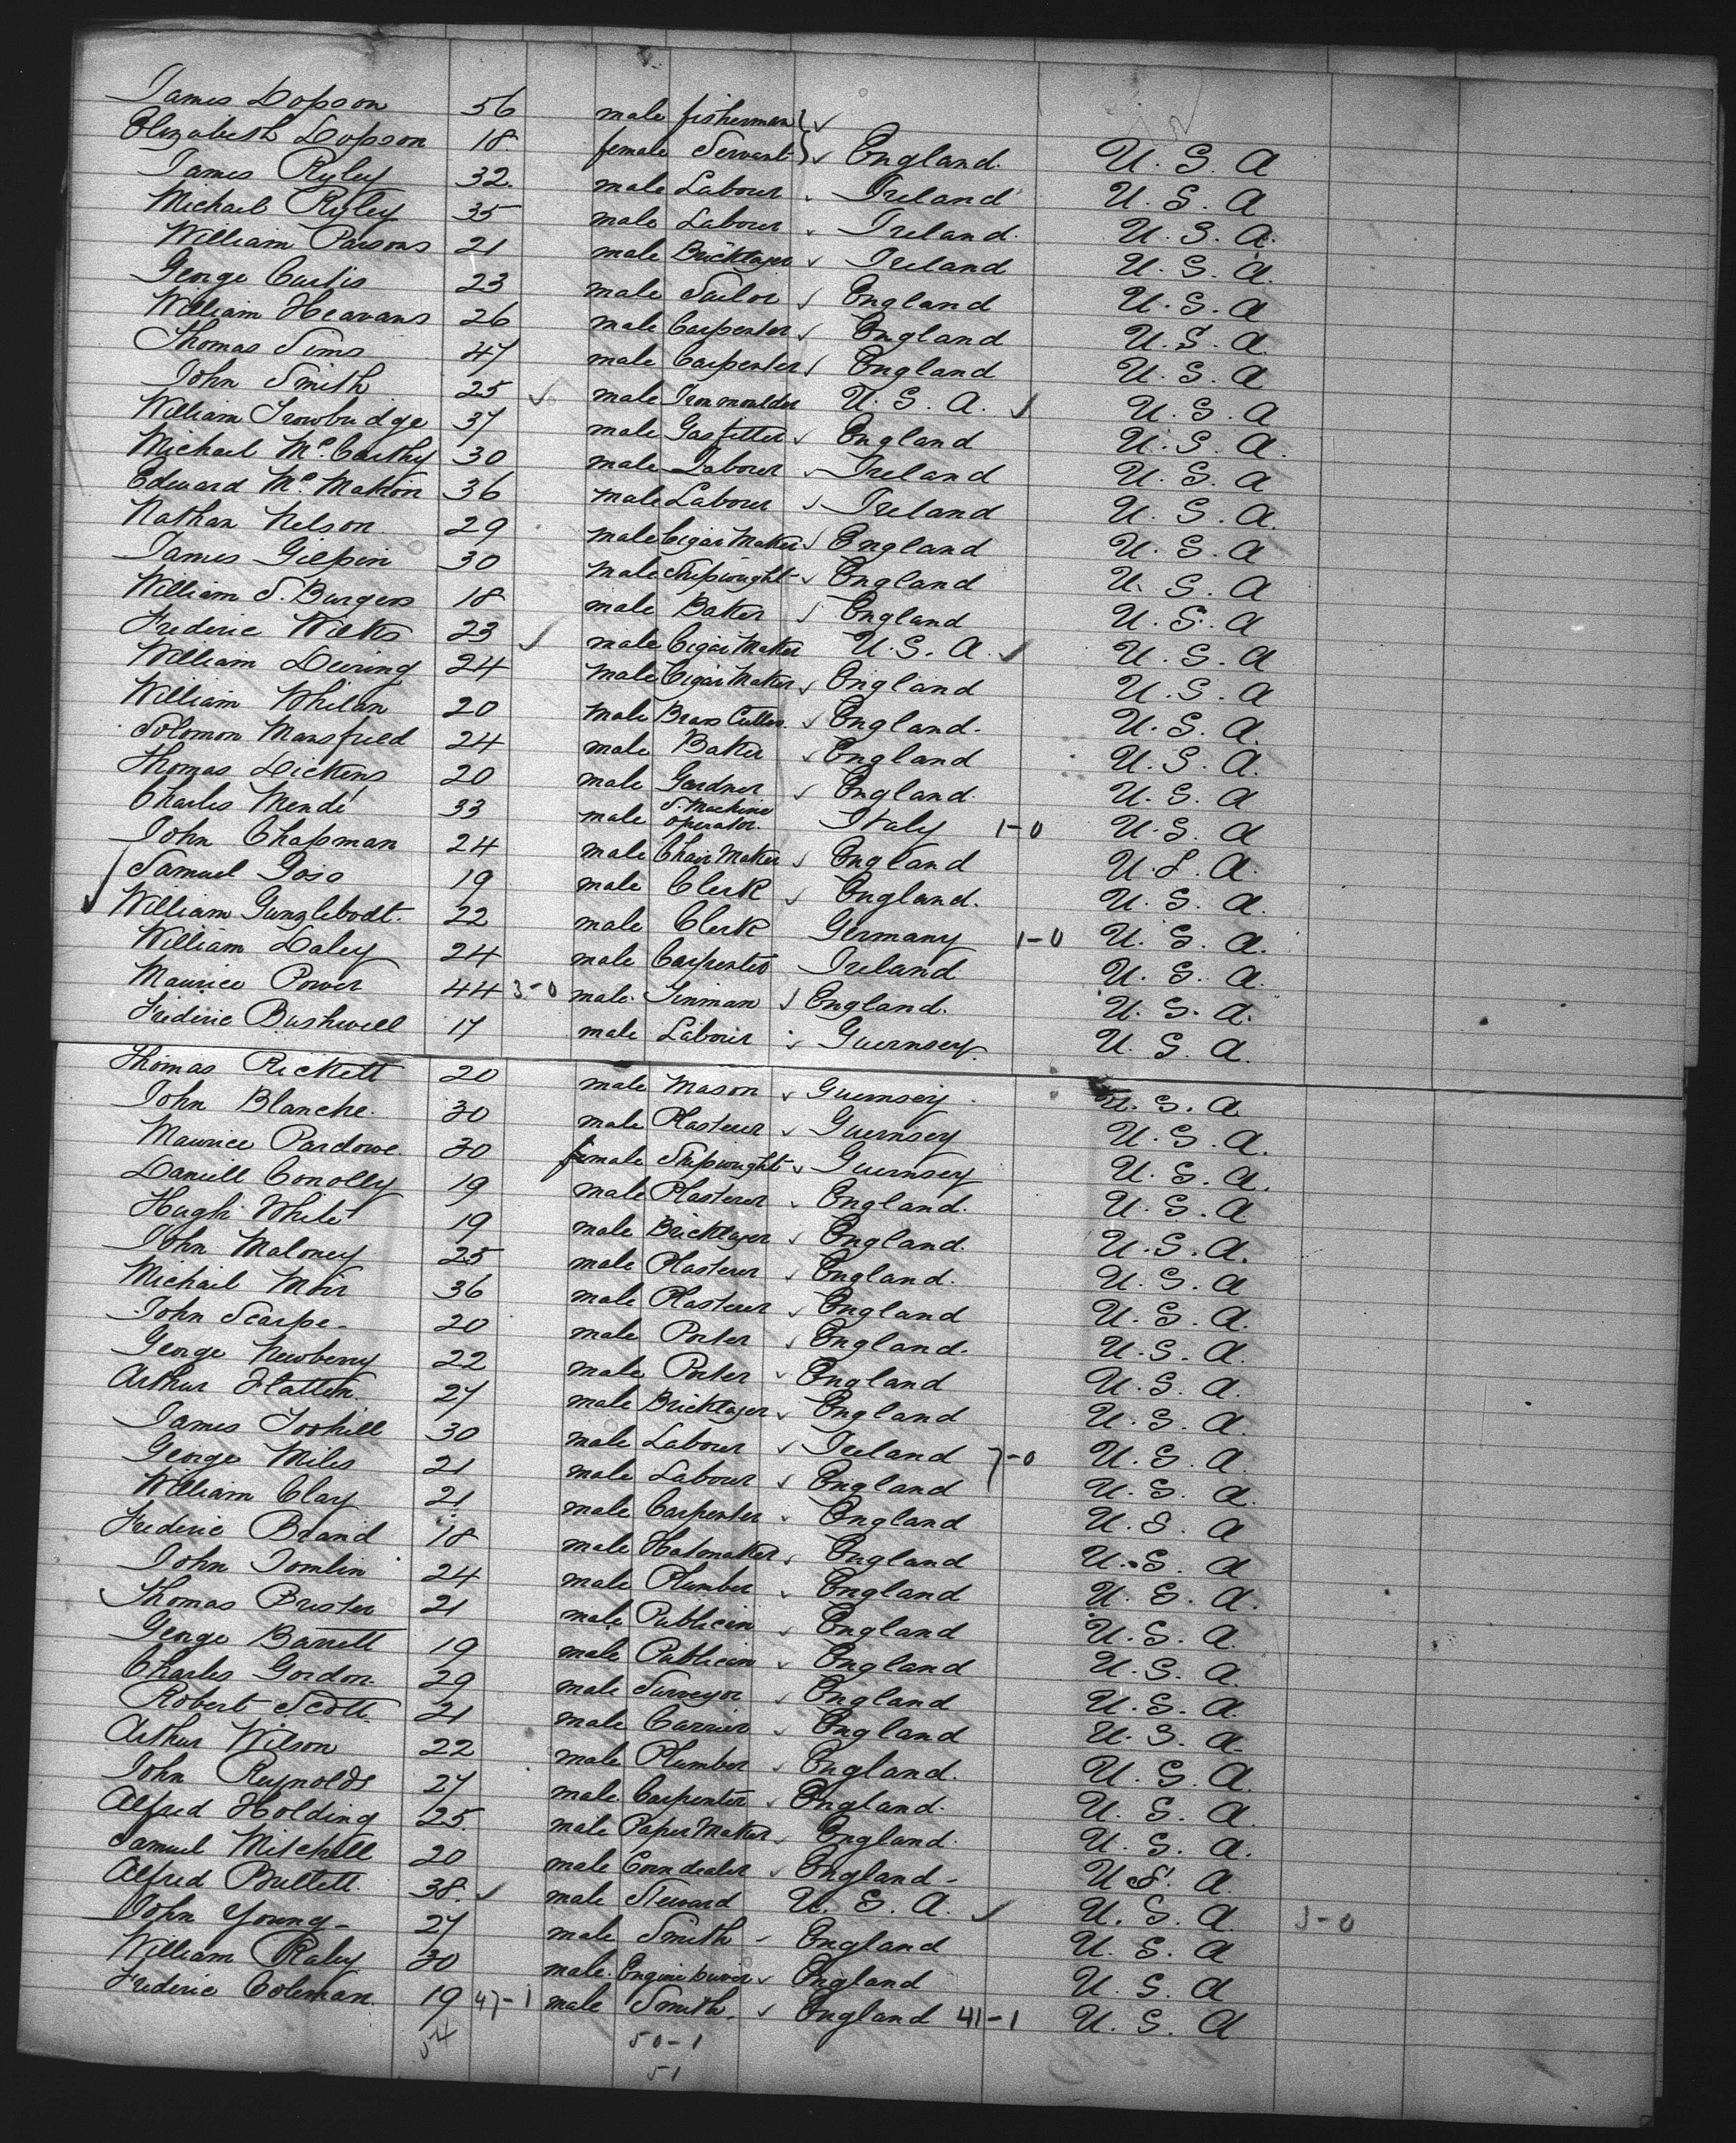 James Dopson 56 male fisherman
Elizabeth Dopson 18 female Servant England. U. S. A
James Ryley 32. male Labour Ireland U. S. A
Michael Ryley 35 male Labour Ireland. U. S. A.
William Parsons 21 male Bricklayer Ireland U. S. A.
George Curtis 23 male Sailor England U. S. A
William Heavans 26 male Carpenter England U. S. A.
Thomas Sims 47 male Carpenter England U. S. A
John Smith 25 male Iron moulder U. S. A. U. S. A
William Trowbridge 37 male Gasfitter England U. S. A.
Michael Mc. Carthy 30 male Labour Ireland U. S. A
Edward Mc. Mahon 36 male Labour Ireland U. S. A.
Nathan Nelson 29 male Cigar Maker England U. S. A
James Gilpin 30 male Shipwright England U. S. A
William S. Burgess 18 male Baker England U. S. A
Frederic Wilks 23 male Cigar Maker U. S. A. U. S. A
William Deering 24 male Cigar Maker England U. S. A
William Whilan 20 male Brass Cutter England. U. S. A.
Solomon Mansfield 24 male Baker England U. S. A.
Thomas Dickens 20 male Gardner England. U. S. A
Charles Mendé 33 male S. Machine operator. Italy 1-0 U. S. A
John Chapman 24 male Chair Maker England U. S. A.
Samuel 19 male Clerk England. U. S. A.
William 22 male Clerk Germany 1-0 U. S. A.
William Daley 24 male Carpenter Ireland U. S. A.
Maurice Power 44 3-0 male. England. U. S. A.
Frederic Bushwell 17 male Labour Guernsey. U. S. A.
Thomas Rickett 20 male Mason Guernsey. U. S. A
John Blanche. 30 male Plasterer Guernsey U. S. A.
Maurice Pardowe. 30 female Shipwright Guernsey U. S. A.
Daniell Conolly 19 male Plasterer England. U. S. A
Hugh White 19 male Bricklayer England. U. S. A.
John Maloney 25 male Plasterer England. U. S. A
Michael Moir 36 male Plasterer England U. S. A.
John Scarpe- 20 male Porter England. U. S. A.
George Newberry 22 male Porter England U. S. A.
Arthur Hatten. 27 male Bricklayer England U. S. A.
James Toohill 30 male Labour Ireland 7-0 U. S. A.
George Miles 21 male Labour England U. S. A.
William Clay 21 male Carpenter England U. S. A
Frederic Brand 18 male Hatmaker England U. S. A
John Tomlin 24 male Plumber England U. S. A.
Thomas Buster 21 male Publican England U. S. A.
George Barrett 19 male Publican England U. S. A.
Charles Gordon. 29 male Surveyor England U. S. A.
Robert Scott 21 male Carrier England U. S. A.
Arthur Wilson 22 male Plumber England. U. S. A.
John Reynolds 27 male Carpenter England. U. S. A.
Alfred Holding 25. male Paper Maker England. U. S. A.
Samuel Mitchell 20 male Corn dealer England - U S. A.
Alfred Bullett. 38. male Steward U. S. A. U. S. A. 3-0
John Young- 27 male Smith - England U. S. A
William Raley 30 male. Engine Driver England U. S. A
Frederic Coleman. 19 47-1 male Smith. England 41-1 U. S. A
54 50-1
51